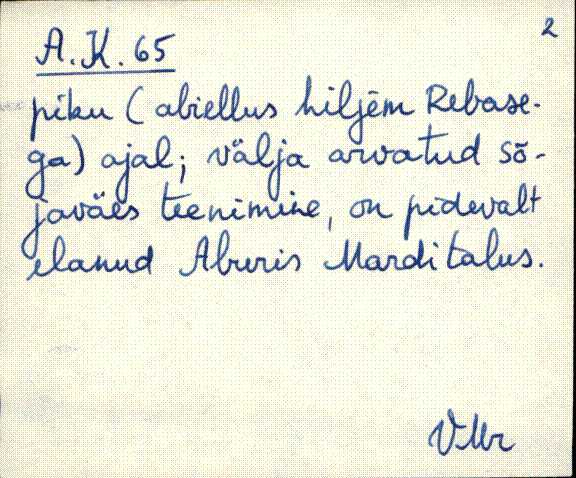 2
A.K. 65
piku (abiellus hiljem Rebase-
ga) ajal; välja arvatud sõ-
javäes teenimine, on pidevalt
elanud Aburis Marditalus.
VMr